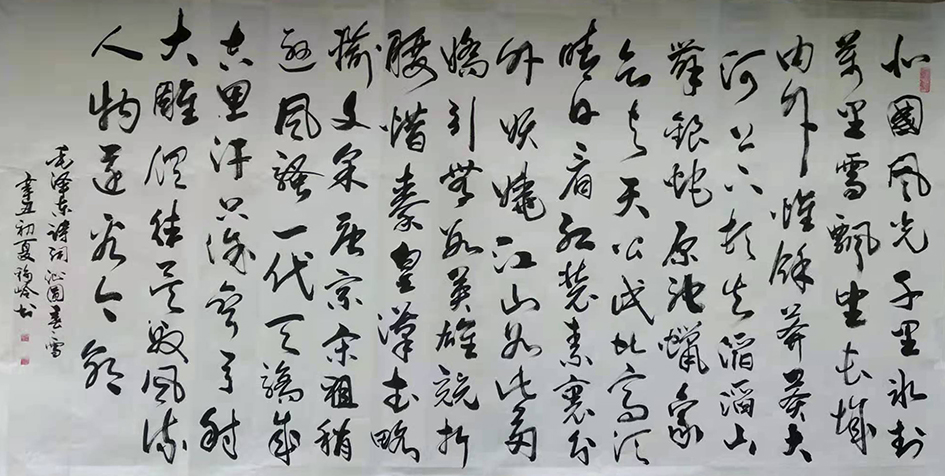 北國風光千里冰封
萬里雪飄望长城
内外惟餘莽莽大
河上下頓失滔滔山
舞銀蛇原馳蠟象
欲与天公试比高须
晴日看红装素裹分
外妖嬈江山如此多
嬌引無数英雄競折
腰惜秦皇漢武略
輸文采唐宗宋祖稍
遜風騷一代天驕成
吉思汗只識彎弓射
大雕俱往矣数風流
人物還看今朝
毛泽东诗词沁園春雪
辛丑初夏福岭书